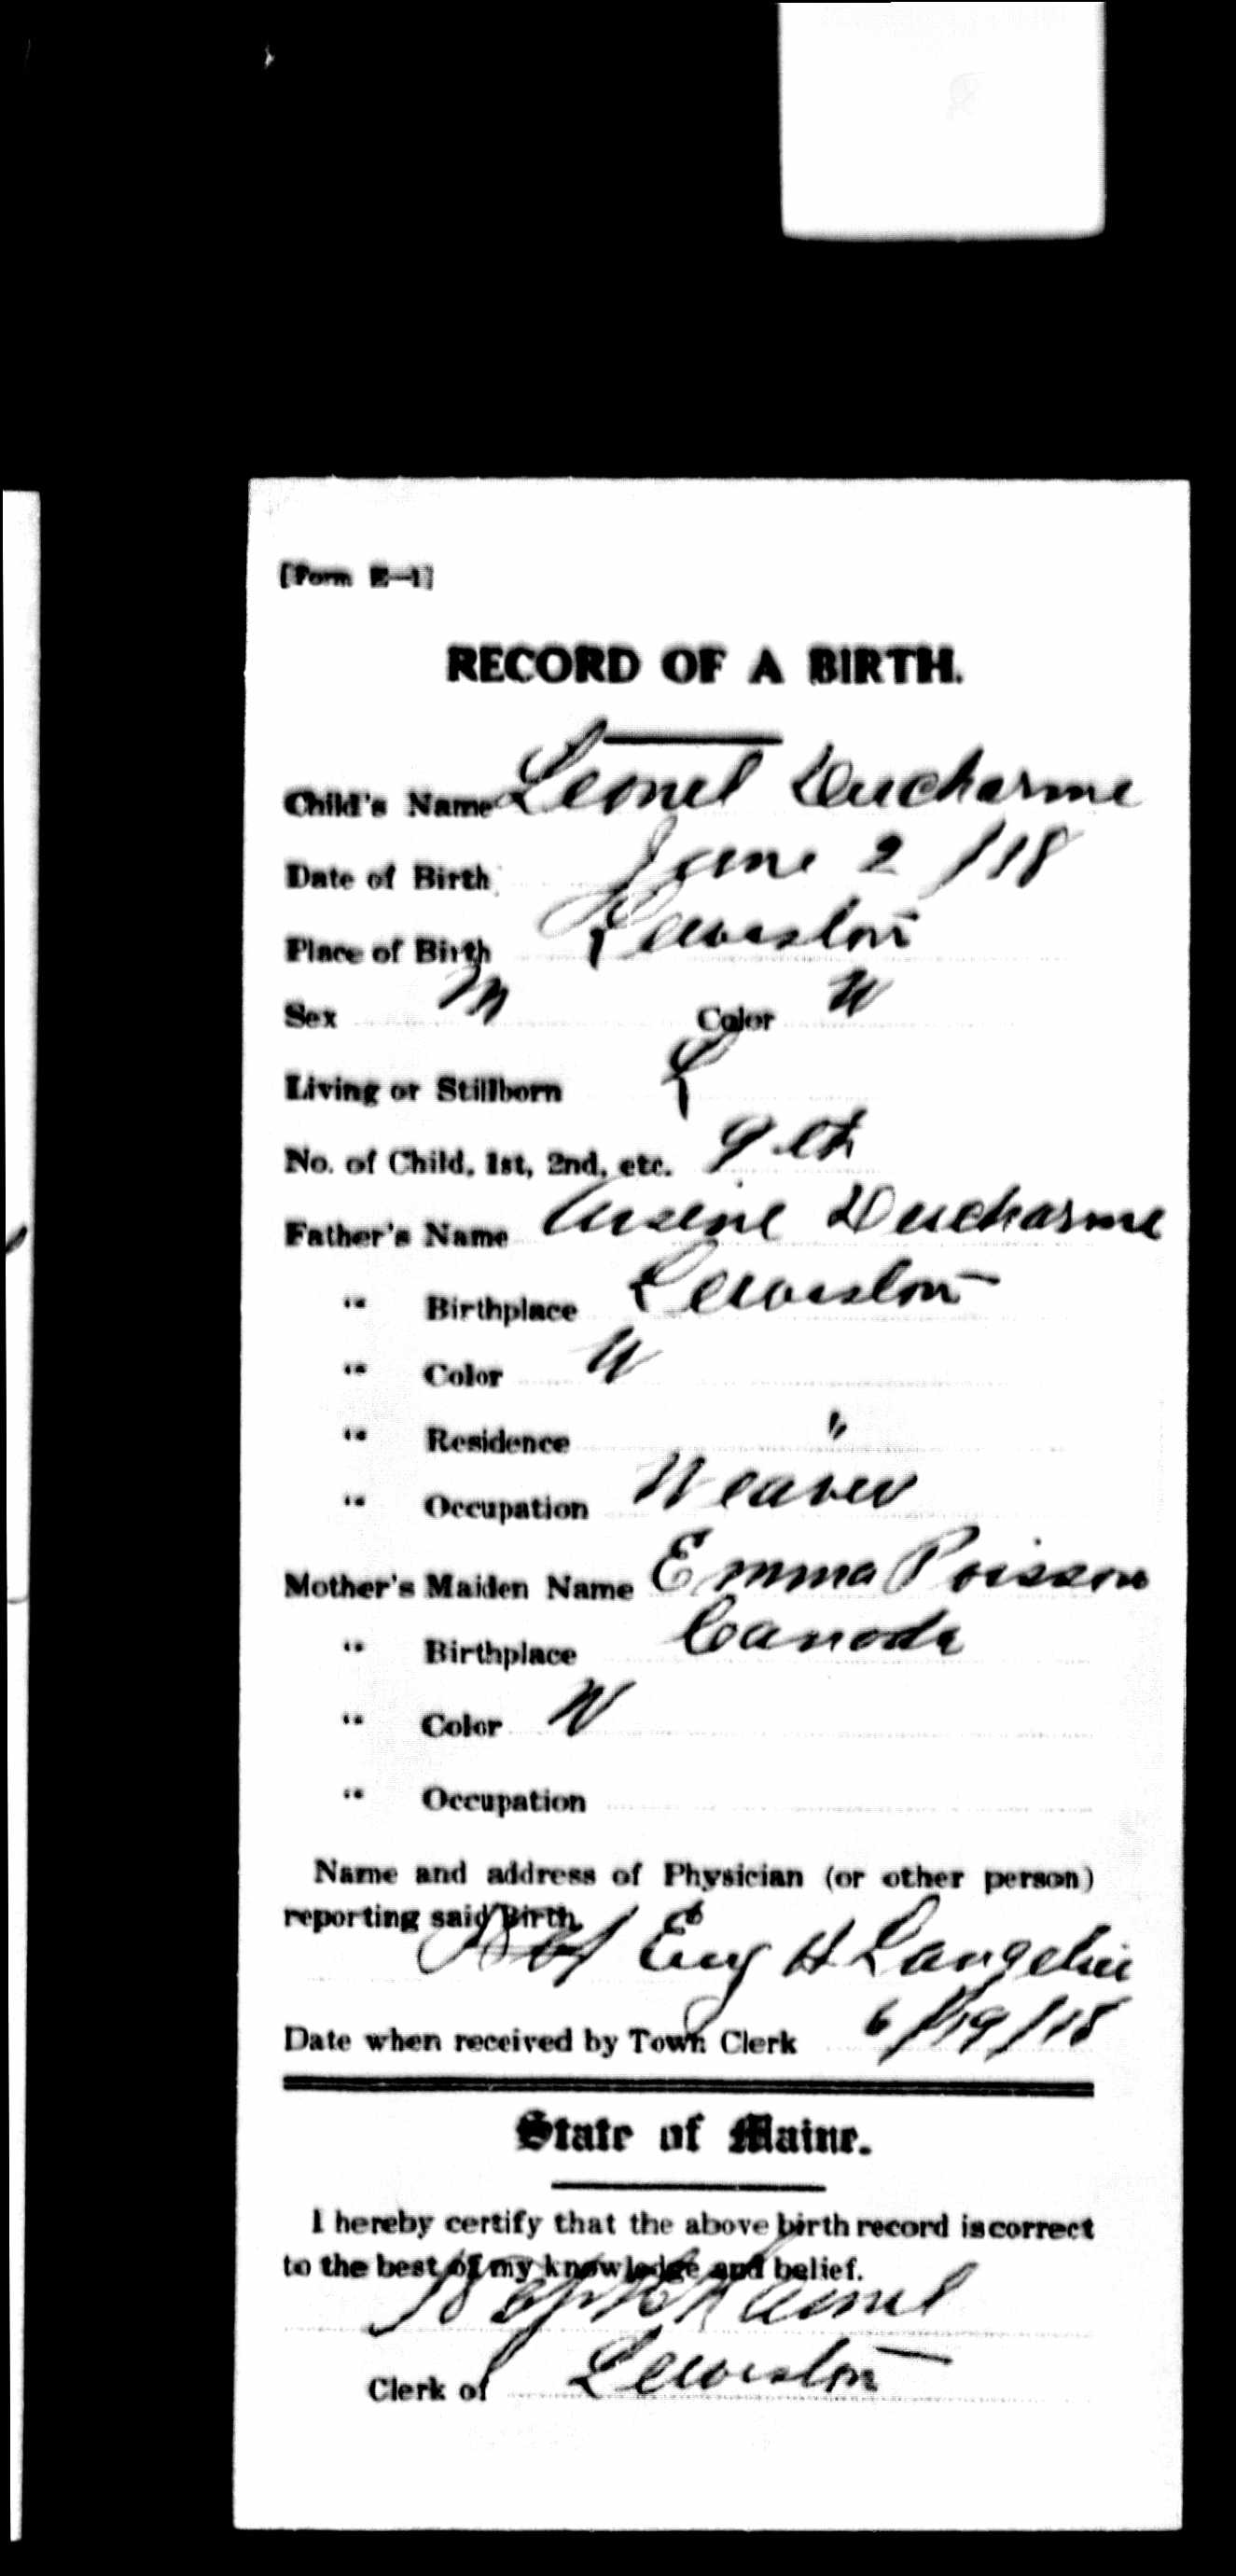 [Form E—1]
RECORD OF A BIRTH.
Child's Name Leonel Ducharme
Date of Birth June 2 /18
Place of Birth Lewiston
Sex M Color W
Living or Stillborn L
No. of Child, 1st, 2nd, etc. 9 th
Father's Name Arsene Ducharme
" Birthplace Lewiston
" Color W
" Residence "
" Occupation Weaver
Mother's Maiden Name Emma Poisson
" Birthplace Canada
" Color W
" Occupation
Name and address of Physician (or other person)
reporting said Birth.
Eug H Langelier
Date when received by Town Clerk 6/19/18
State of Maine.
I hereby certify that the above birth record is correct
to the best of my knowledge and belief.
Clerk of Lewiston